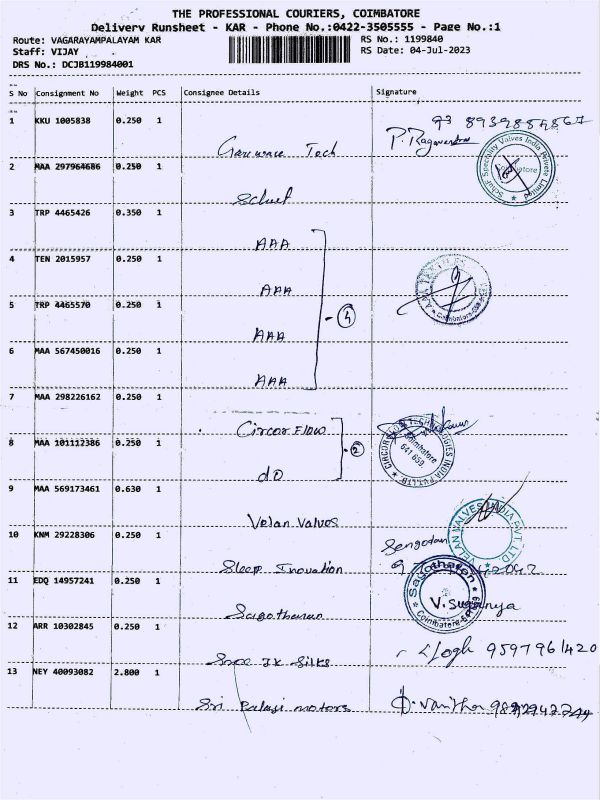 THE PROFESSIONAL COURIERS, COIMBATORE
Delivery Runsheet - KAR - Phone No.:0422-3505555 - Page No.:1
Route: VAGARAYAMPALAYAM KAR
RS No.: 1199840
Staff: VIJAY
RS Date: 04-Jul-2023
DRS No.: DCJB119984001
S No Consignment No Weight PCS Consignee Details Signature
1 KKU 1005838 0.250 1
P. Ragavendra
Garware Tech
2 MAA 297964686 0.250 1
Schuf Speciality Valves India Private Limited
Coimbatore
Schuf
3 TRP 4465426 0.350 1
AAA
4 TEN 2015957 0.250 1
AAA
5 TRP 4465570 0.250 1
4
AAA
6 MAA 567450016 0.250 1
AAA
7 MAA 298226162 0.250 1
Circor Flow
CIRCOR FLOW TECHNOLOGIES INDIA PVT.LTD
Coimbatore
641 659
8 MAA 101112386 0.250 1
2
do
9 MAA 569173461 0.630 1
Velan Valves
VELAN VALVES INDIA PVT. LTD
10 KNM 29228306 0.250 1
Sengotan
Sleep Inovation
11 EDQ 14957241 0.250 1
Sagotharan
V. Suganya
Sagotharan
12 ARR 10302845 0.250 1
Sree JK Silks
9597961420
13 NEY 40093082 2.800 1
Sri Balaji motors
Vanitha